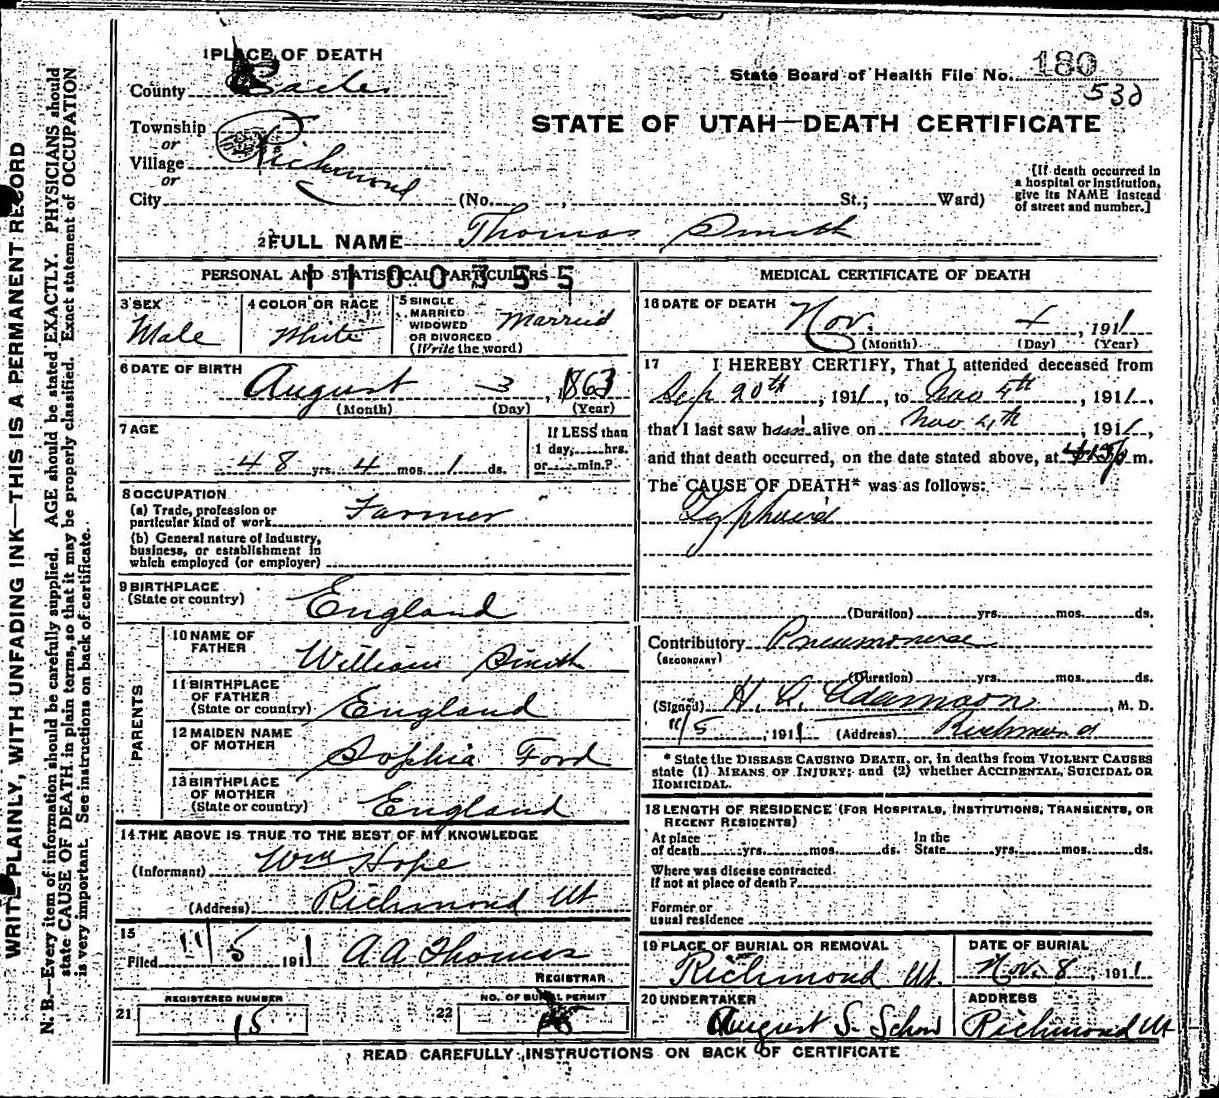 WRITE PLAINLY, WITH UNFADING INK—THIS IS A PERMANENT RECORD
N. B.—Every item of information should be carefully supplied. AGE should be stated EXACTLY. PHYSICIANS should
state CAUSE OF DEATH in plain terms, so that it may be properly classified. Exact statement of OCCUPATION
is very important. See instructions on back of certificate.
1 PLACE OF DEATH
County Cache
State Board of Health File No. 180
530
STATE OF UTAH—DEATH CERTIFICATE
Township
or
Village Richmond
or
City (No. , St.; Ward)
[If death occurred in
a hospital or institution,
give its NAME instead
of street and number.]
2 FULL NAME Thomas Smith
PERSONAL AND STATISTICAL PARTICULARS
1100355
3 SEX
Male
4 COLOR OR RACE
White
5 SINGLE
MARRIED
WIDOWED
OR DIVORCED
(Write the word)
Married
6 DATE OF BIRTH
August 3, 1863
(Month) (Day) (Year)
7 AGE
48 yrs. 4 mos. 1 ds.
If LESS than
1 day, hrs.
or min.?
8 OCCUPATION
(a) Trade, profession or
particular kind of work Farmer
(b) General nature of industry,
business, or establishment in
which employed (or employer)
9 BIRTHPLACE
(State or country) England
PARENTS
10 NAME OF
FATHER William Smith
11 BIRTHPLACE
OF FATHER
(State or country) England
12 MAIDEN NAME
OF MOTHER Sophia Ford
13 BIRTHPLACE
OF MOTHER
(State or country) England
14 THE ABOVE IS TRUE TO THE BEST OF MY KNOWLEDGE
(Informant) Wm Hope
(Address) Richmond Ut
15
Filed 11/5 1911 A A Thomas
REGISTRAR
21 REGISTERED NUMBER
15
22 NO. OF BURIAL PERMIT
MEDICAL CERTIFICATE OF DEATH
16 DATE OF DEATH
Nov. 4, 1911
(Month) (Day) (Year)
17 I HEREBY CERTIFY, That I attended deceased from
Sep 20th, 1911, to Nov 4th, 1911,
that I last saw him alive on Nov 4th, 1911,
and that death occurred, on the date stated above, at m.
The CAUSE OF DEATH* was as follows:
Typhoid
(Duration) yrs. mos. ds.
Contributory
(SECONDARY)
(Duration) yrs. mos. ds.
(Signed) H. Adamson, M. D.
11/5, 1911 (Address) Richmond
* State the DISEASE CAUSING DEATH, or, in deaths from VIOLENT CAUSES
state (1) MEANS OF INJURY; and (2) whether ACCIDENTAL, SUICIDAL OR
HOMICIDAL.
18 LENGTH OF RESIDENCE (FOR HOSPITALS, INSTITUTIONS, TRANSIENTS, OR
RECENT RESIDENTS)
At place
of death yrs. mos. ds.
In the
State yrs. mos. ds.
Where was disease contracted
If not at place of death?
Former or
usual residence
19 PLACE OF BURIAL OR REMOVAL
Richmond Ut.
DATE OF BURIAL
Nov. 8, 1911
20 UNDERTAKER
August S. Schow
ADDRESS
Richmond Ut
READ CAREFULLY INSTRUCTIONS ON BACK OF CERTIFICATE